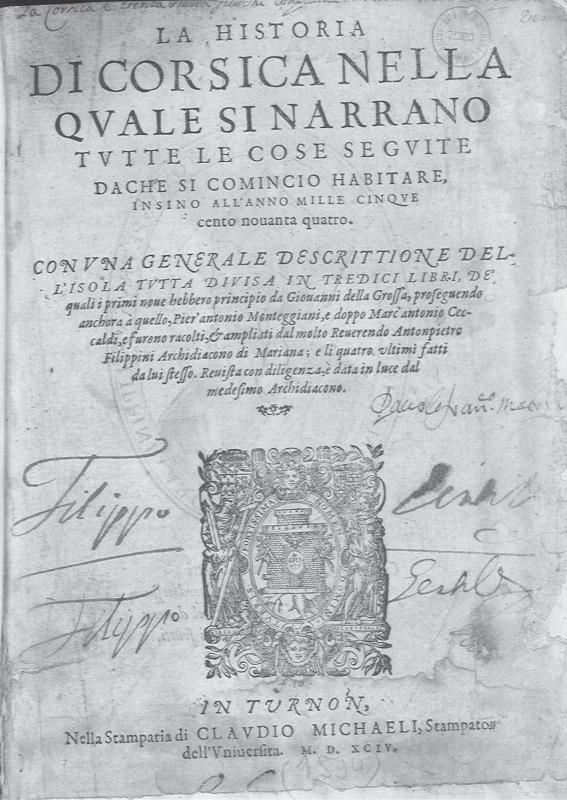 La Corsica è
LA HISTORIA
DI CORSICA NELLA
QVALE SI NARRANO
TVTTE LE COSE SEGVITE
DACHE SI COMINCIO HABITARE,
INSINO ALL'ANNO MILLE CINQVE
cento nouanta quatro.
CON VNA GENERALE DESCRITTIONE DEL-
L'ISOLA TVTTA DIVISA IN TREDICI LIBRI, DE'
quali i primi noue hebbero principio da Giouanni della Grossa, proseguendo
anchora à quello, Pier'antonio Monteggiani, e doppo Marc'antonio Cec-
caldi, e furono racolti, & ampliati dal molto Reuerendo Antonpietro
Filippini Archidiacono di Mariana; e li quatro vltimi fatti
da lui stesso. Reuista con diligenza, è data in luce dal
medesimo Archidiacono.
Filippo
Filippo
IN TVRNON,
Nella Stamparia di CLAVDIO MICHAELI, Stampator
dell'Vniuersita. M. D. XCIV.
(1594)